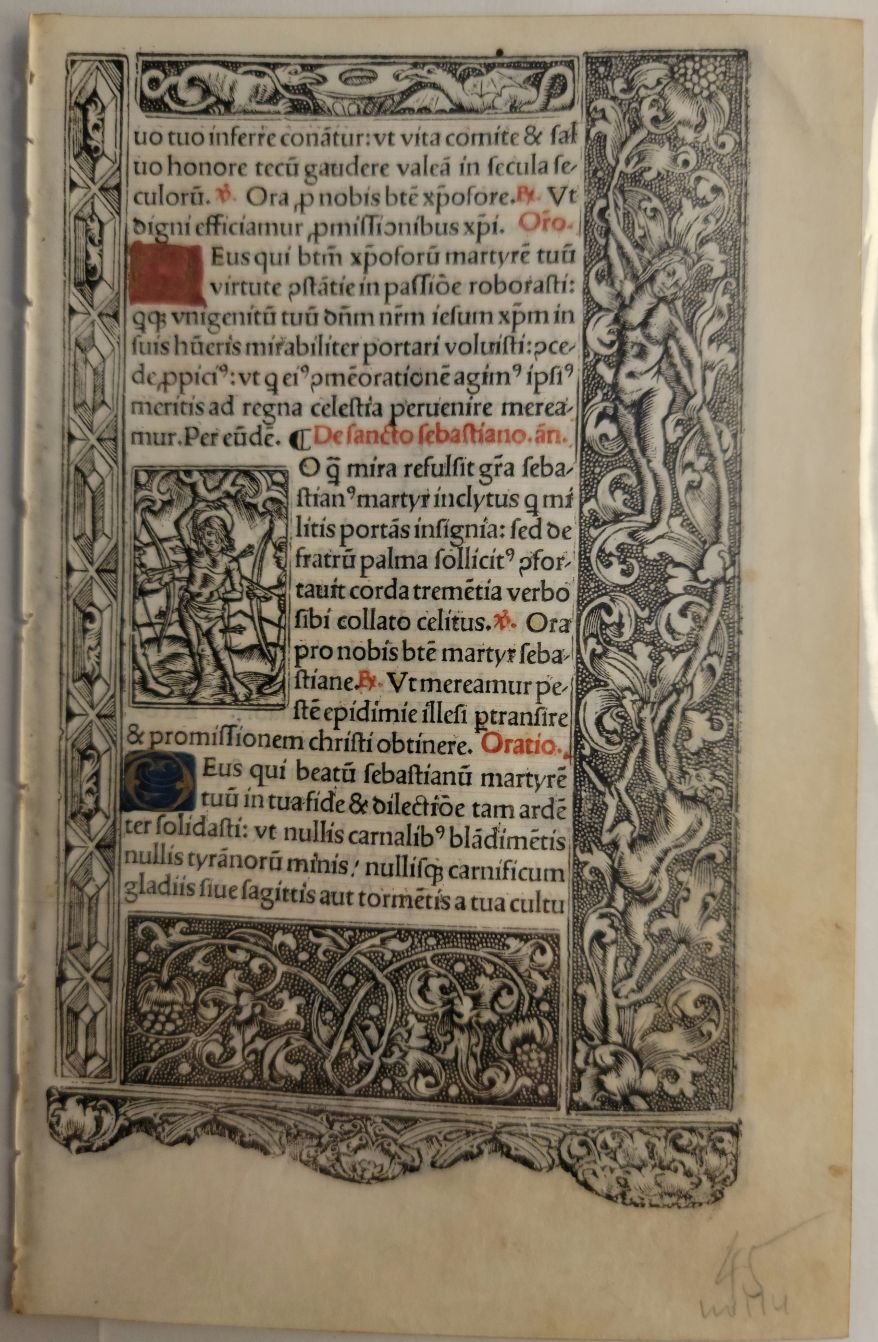 uo tuo inferre conãtur: vt vita comite & sal
uo honore tecũ gaudere valeã in secula se⸗
culorũ. ℣. Ora ꝓ nobis btẽ xp̃ofore. ℟. Vt
digni efficiamur ꝓmissionibus xp̃i. Oro.
Eus qui btm̃ xp̃oforũ martyrẽ tuũ
virtute ꝯstãtie in passiõe roborasti:
qꝗ vnigenitũ tuũ dñm nr̃m iesum xp̃m in
suis hũeris mirabiliter portari voluisti: ꝯce⸗
de ꝓpiciꝰ: vt q eiꝰ ꝯmẽorationẽ agimꝰ ipsiꝰ
meritis ad regna celestia peruenire merea⸗
mur. Per eũdẽ. ¶ De sancto sebastiano. añ.
O q̃ mira refulsit gr̃a seba⸗
stianꝰ martyr inclytus q mi
litis portãs insignia: sed de
fratrũ palma sollicitꝰ ꝯfor⸗
tauit corda tremẽtia verbo
sibi collato celitus. ℣. Ora
pro nobis btẽ martyr seba⸗
stiane. ℟. Vt mereamur pe⸗
stẽ epidimie illesi ꝑtransire
& promissionem christi obtinere. Oratio.
Eus qui beatũ sebastianũ martyrẽ
tuũ in tua fide & dilectiõe tam ardẽ
ter solidasti: vt nullis carnalibꝰ blãdimẽtis
nullis tyrãnorũ minis/ nullisqꝫ carnificum
gladiis siue sagittis aut tormẽtis a tua cultu
45